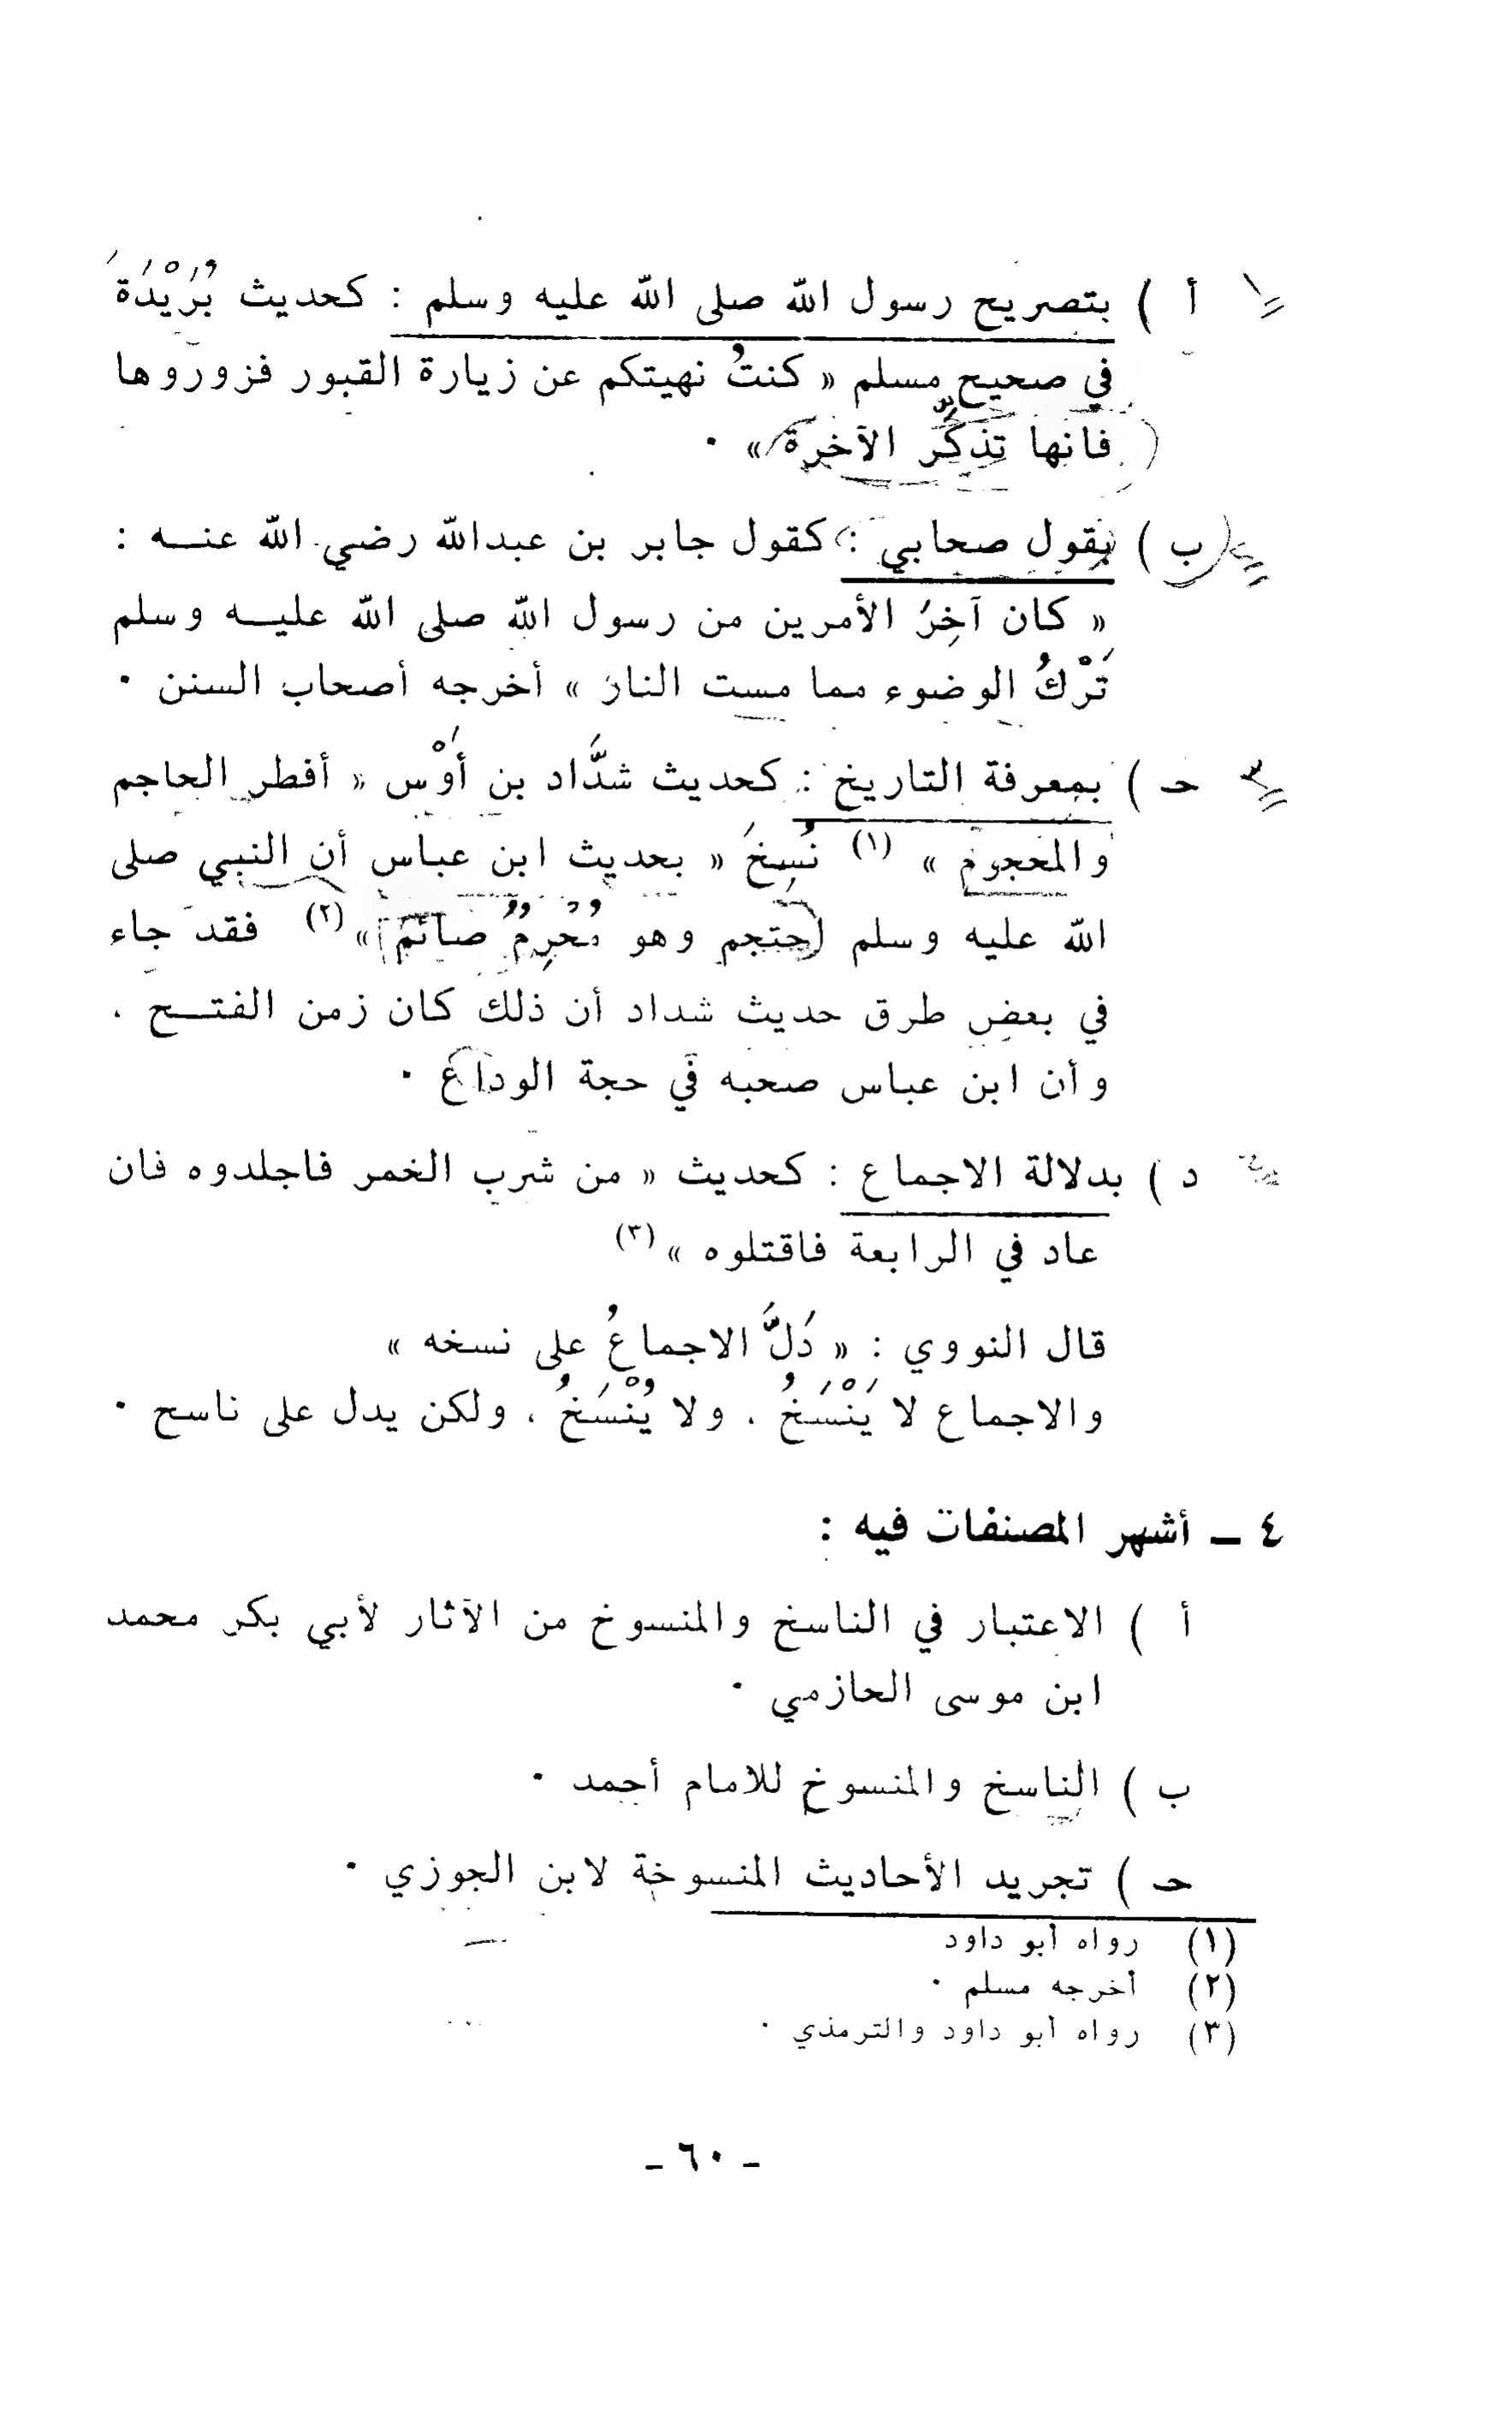 أ ) بتصريح رسول الله صلى الله عليه وسلم : كحديث بُرَيْدَةَ
في صحيح مسلم « كنتُ نهيتكم عن زيارة القبور فزوروها
فانها تذكِّر الآخرة » ٠
ب ) بقول صحابي : كقول جابر بن عبدالله رضي الله عنه :
« كان آخِرُ الأمرين من رسول الله صلى الله عليه وسلم
تَرْكُ الوضوء مما مست النار » أخرجه أصحاب السنن ٠
٣ حـ ) بمعرفة التاريخ : كحديث شدَّاد بن أَوْس « أفطر الحاجم
والمحجوم » (١) نُسِخَ « بحديث ابن عباس أن النبي صلى
الله عليه وسلم احتجم وهو مُحْرِمٌ صائمٌ » (٢) فقد جاء
في بعض طرق حديث شداد أن ذلك كان زمن الفتح ،
وأن ابن عباس صحبه في حجة الوداع ٠
د ) بدلالة الاجماع : كحديث « من شرب الخمر فاجلدوه فان
عاد في الرابعة فاقتلوه » (٣)
قال النووي : « دَلَّ الاجماعُ على نسخه »
والاجماع لا يَنْسَخُ ، ولا يُنْسَخُ ، ولكن يدل على ناسح ٠
٤ ـ أشهر المصنفات فيه :
أ ) الاعتبار في الناسخ والمنسوخ من الآثار لأبي بكر محمد
ابن موسى الحازمي ٠
ب ) الناسخ والمنسوخ للامام أحمد ٠
حـ ) تجريد الأحاديث المنسوخة لابن الجوزي ٠
(١) رواه أبو داود
(٢) أخرجه مسلم ٠
(٣) رواه أبو داود والترمذي ٠
- ٦٠ -